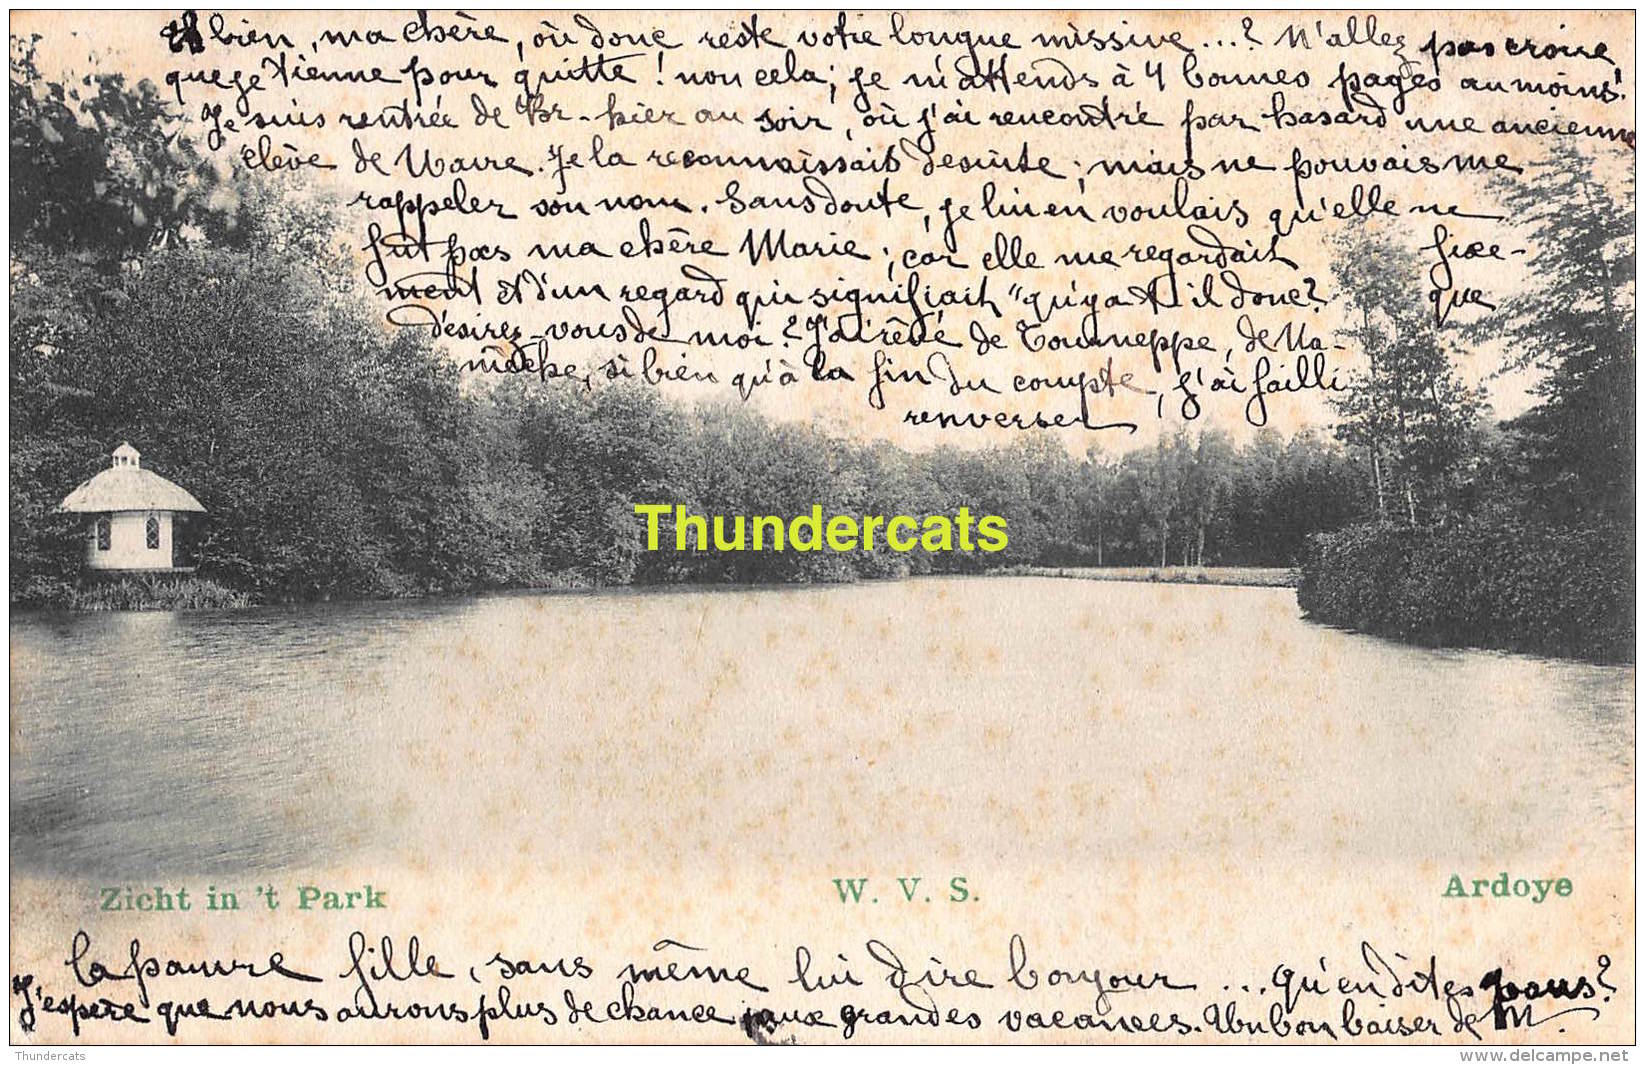 Eh bien, ma chère, où donc reste votre longue missive...? N'allez pas croire
que je tienne pour quitte! non cela; je m'attends à 4 bonnes pages au moins!
Je suis rentrée de Br- hier au soir, où j'ai rencontré par hasard une ancienne
élève de Wavre. Je la reconnaissais desuite; mais ne pouvais me
rappeler son nom. Sans doute, je lui en voulais qu'elle ne
fut pas ma chère Marie; car elle me regardait fixe-
ment et d'un regard qui signifiait "qu'y a t il donc? que
désirez-vous de moi? J'ai rêvé de Tourneppe, de Na-
mêche, si bien qu'à la fin du compte, j'ai failli
renverser
Thundercats
Zicht in 't Park W. V. S. Ardoye
la pauvre fille, sans même lui dire bonjour ... qu'en dites vous?
J'espère que nous aurons plus de chance aux grandes vacances. Un bon baiser de M.
Thundercats
www.delcampe.net